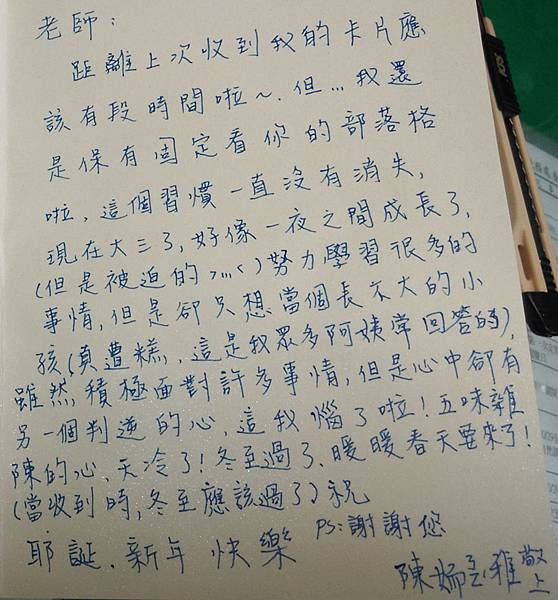 老師：
距離上次收到我的卡片應
該有段時間啦～．但…我還
是保有固定看你的部落格
啦，這個習慣一直沒有消失，
現在大三了，好像一夜之間成長了，
(但是被迫的>…<)努力學習很多的
事情，但是卻只想當個長不大的小
孩(真遭糕，這是我眾多阿姨常回答的)，
雖然積極面對許多事情，但是心中卻有
另一個判逆的心，這我惱了啦！五味雜
陳的心，天冷了！冬至過了、暖暖春天要來了！
(當收到時，冬至應該過了)祝
耶誕、新年 快樂 PS：謝謝您
陳 雅 敬上